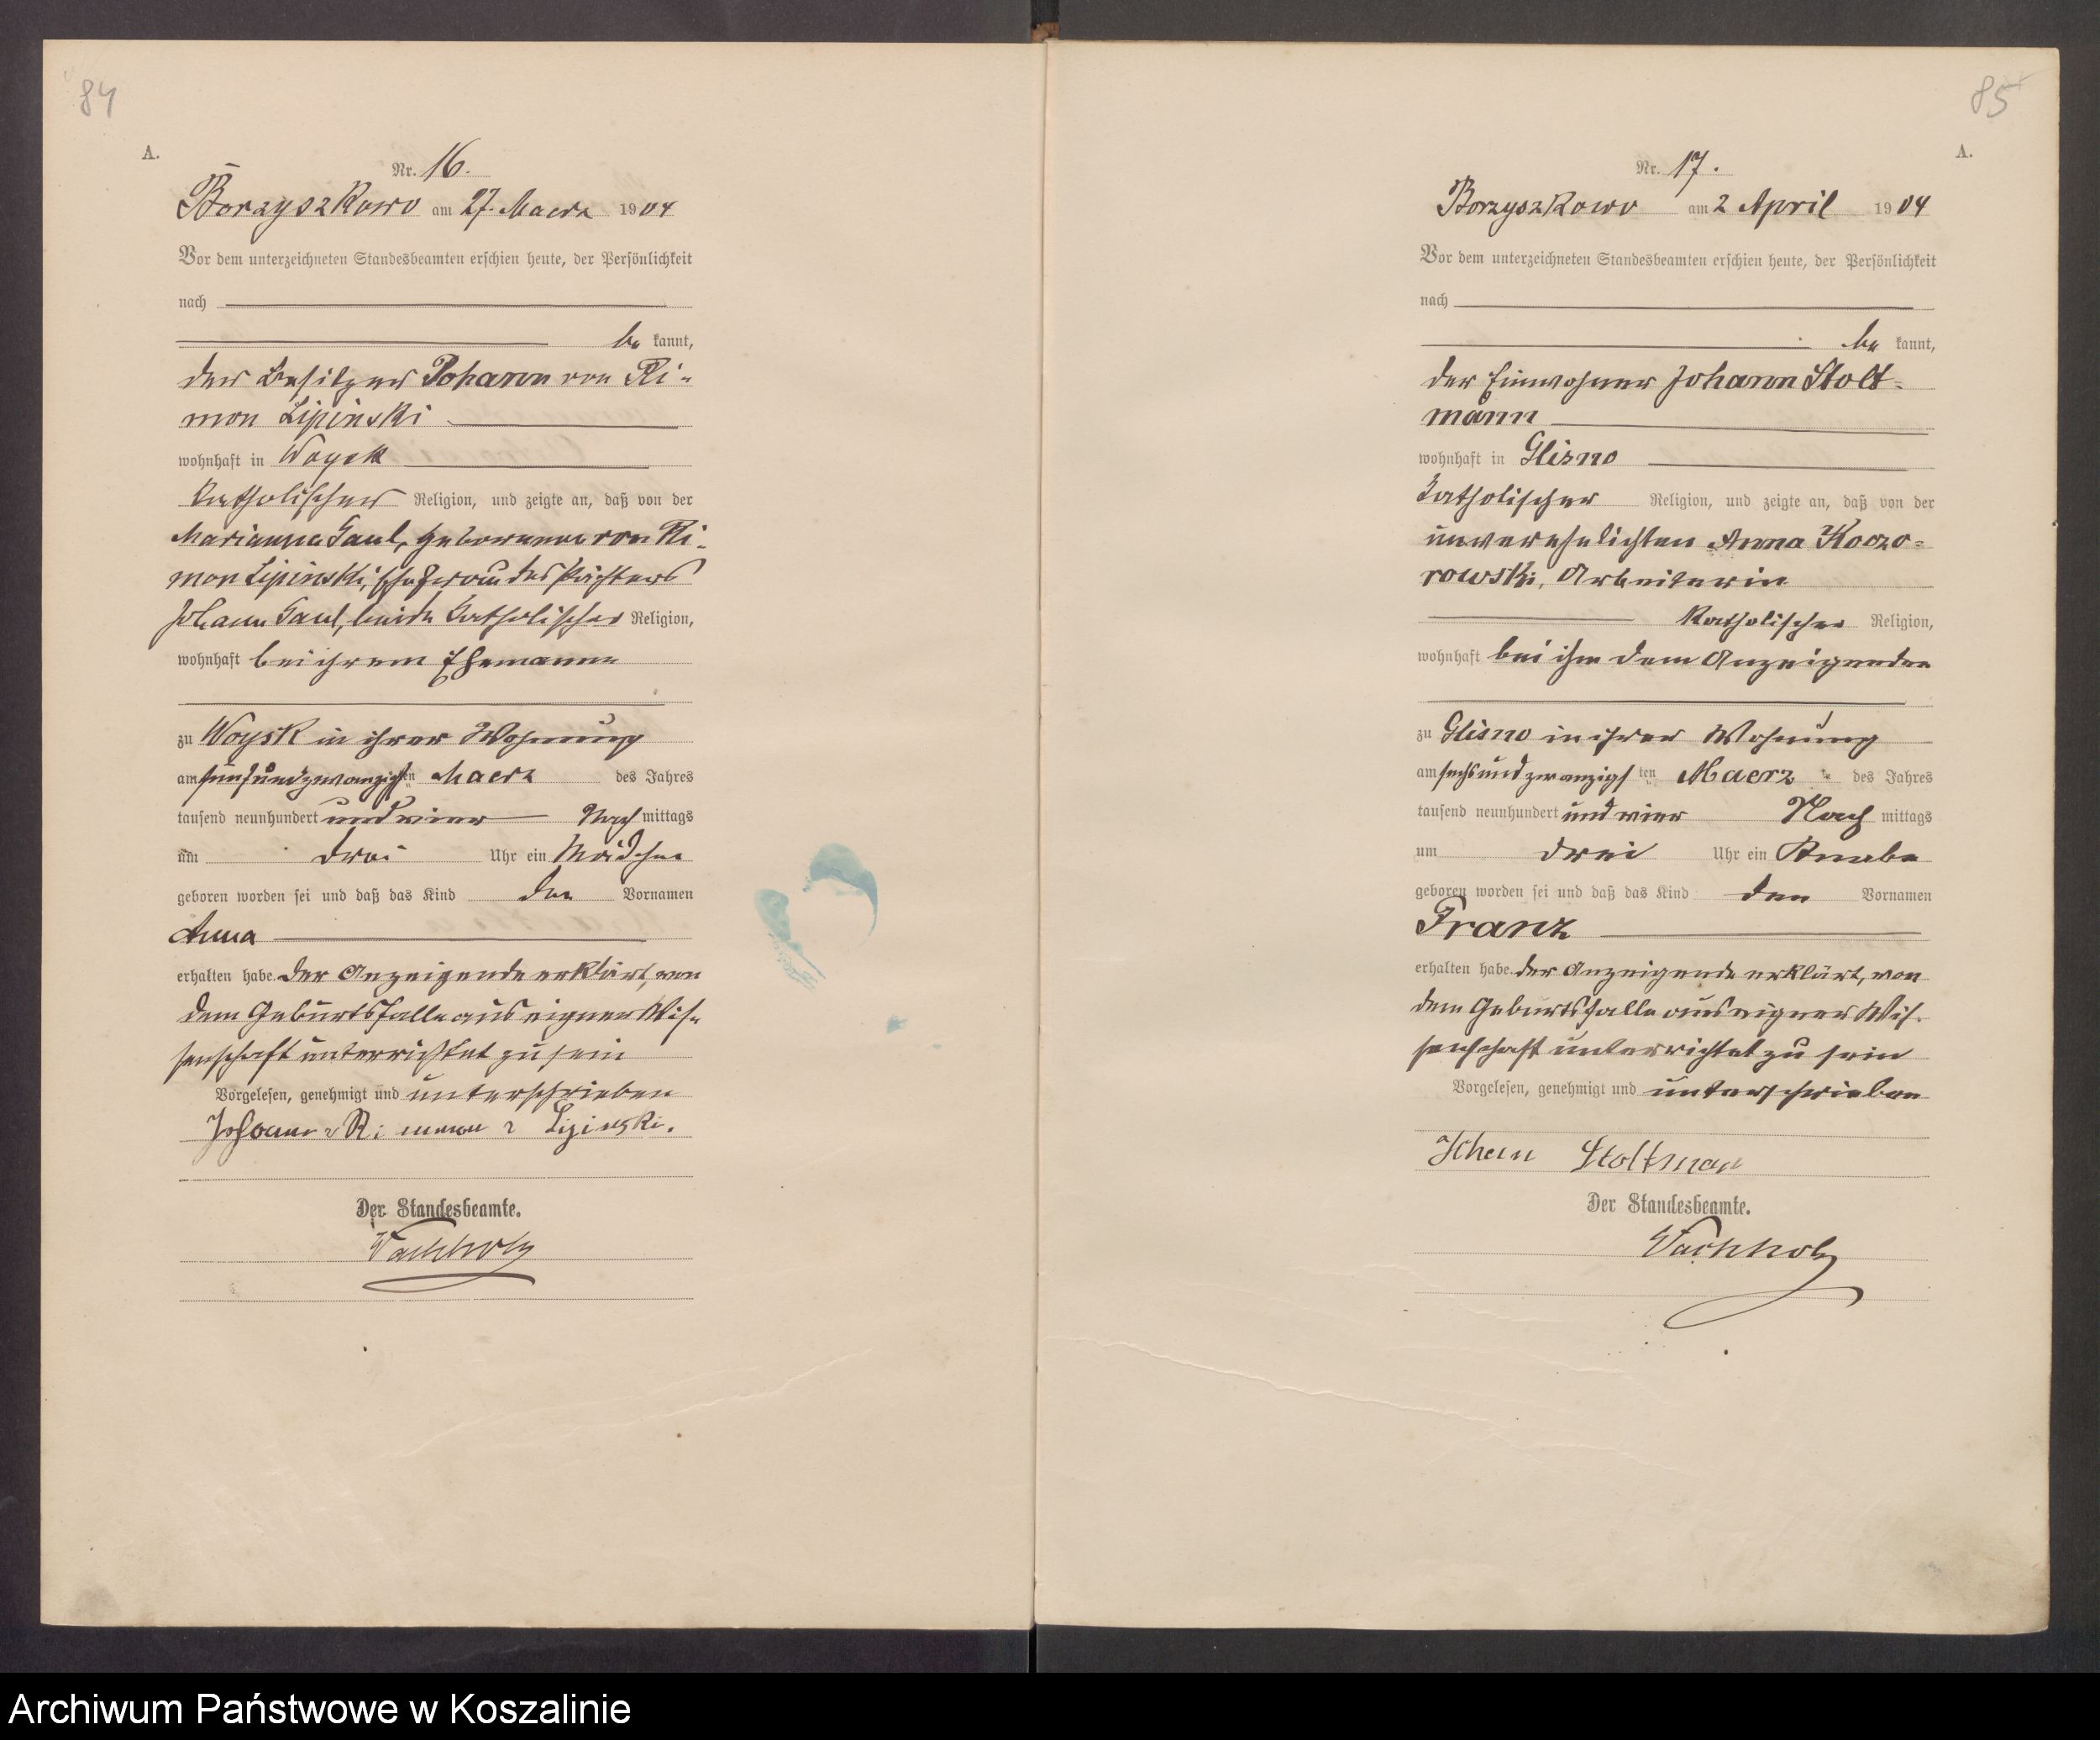 84
A.
Nr. 16.
Borzyszkowo am 27. Maerz 1904
Vor dem unterzeichneten Standesbeamten erschien heute, der Persönlichkeit
nach
be kannt,
der Besitzer Johann von Ri-
mon Lipinski
wohnhaft in Woysk
katholischer Religion, und zeigte an, daß von der
Marianna Gaul, geborenen von Ri-
mon Lipinski, Ehefrau des Pächters
Johann Gaul, beide katholischer Religion,
wohnhaft bei ihrem Ehemanne
zu Woysk in ihrer Wohnung
am fünfundzwanzigsten Maerz des Jahres
tausend neunhundert und vier Nach mittags
um drei Uhr ein Mädchen
geboren worden sei und daß das Kind den Vornamen
Anna
erhalten habe. Der Anzeigende erklärt, von
dem Geburtsfalle aus eigner Wis-
senschaft unterrichtet zu sein
Vorgelesen, genehmigt und unterschrieben
Johann v Ri mon Lipinski.
Der Standesbeamte.
Vachholz
85
A.
Nr. 17.
Borzyszkowo am 2 April 1904
Vor dem unterzeichneten Standesbeamten erschien heute, der Persönlichkeit
nach
be kannt,
der Einwohner Johann Stolt-
mann
wohnhaft in Glisno
katholischer Religion, und zeigte an, daß von der
unverehelichten Anna Koczo-
rowski, Arbeiterin
katholischer Religion,
wohnhaft bei ihm dem Anzeigenden
zu Glisno in ihrer Wohnung
am sechsundzwanzigsten Maerz des Jahres
tausend neunhundert und vier Nach mittags
um drei Uhr ein Knabe
geboren worden sei und daß das Kind den Vornamen
Franz
erhalten habe. Der Anzeigende erklärt, von
dem Geburtsfalle aus eigner Wis-
senschaft unterrichtet zu sein
Vorgelesen, genehmigt und unterschrieben
Johann Stoltman
Der Standesbeamte.
Vachholz
Archiwum Państwowe w Koszalinie